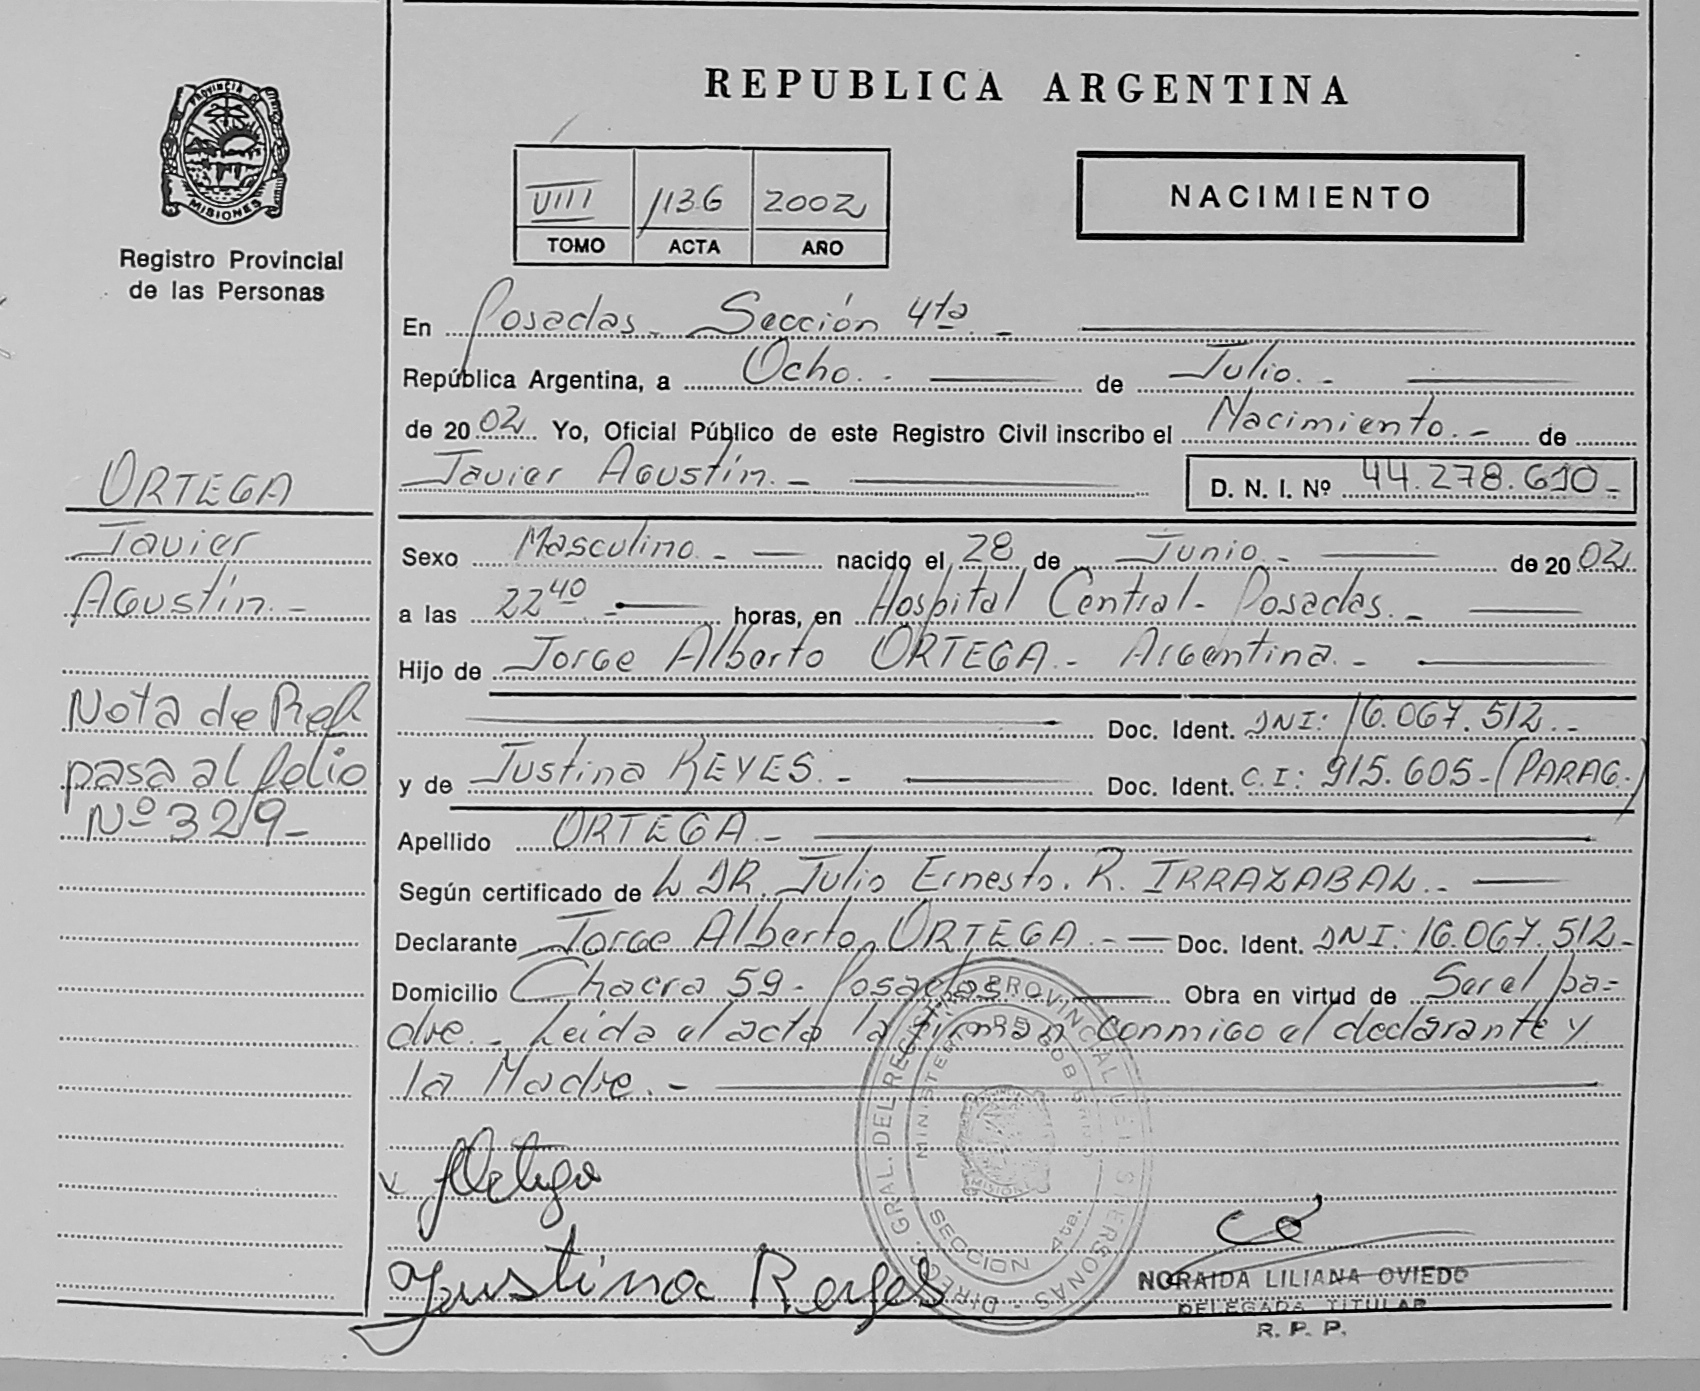 REPUBLICA ARGENTINA
PROVINCIA DE
MISIONES
Registro Provincial
de las Personas
VIII 1136 2002
TOMO ACTA AÑO
NACIMIENTO
En Posadas - Sección 4ta. -
República Argentina, a Ocho. - de Julio. -
de 2002. Yo, Oficial Público de este Registro Civil inscribo el Nacimiento. - de
Javier Agustín. - D. N. I. Nº 44.278.610-
ORTEGA
Javier
Agustín. -
Nota de Ref
pasa al folio
Nº 329-
Sexo Masculino. - nacido el 28 de Junio. - de 2002.
a las 22 40 - horas, en Hospital Central - Posadas. -
Hijo de Jorge Alberto ORTEGA - Argentina. -
Doc. Ident. DNI: 16.067.512. -
y de Justina REYES. - Doc. Ident. C.I: 915.605-(PARAG.)
Apellido ORTEGA. -
Según certificado de L DR. Julio Ernesto. R. IRRAZABAL. -
Declarante Jorge Alberto ORTEGA. - Doc. Ident. DNI: 16.067.512-
Domicilio Chacra 59 - Posadas. - Obra en virtud de Ser el pa=
dre. - Leída el acta la firman conmigo el declarante y
la Madre. -
DIREC. GRAL. DEL REGISTRO PROVINCIAL DE LAS PERSONAS
MINISTERIO DE GOBIERNO
MISIONES
SECCION 4ta.
Justina Reyes
NORAIDA LILIANA OVIEDO
DELEGADA TITULAR
R. P. P.